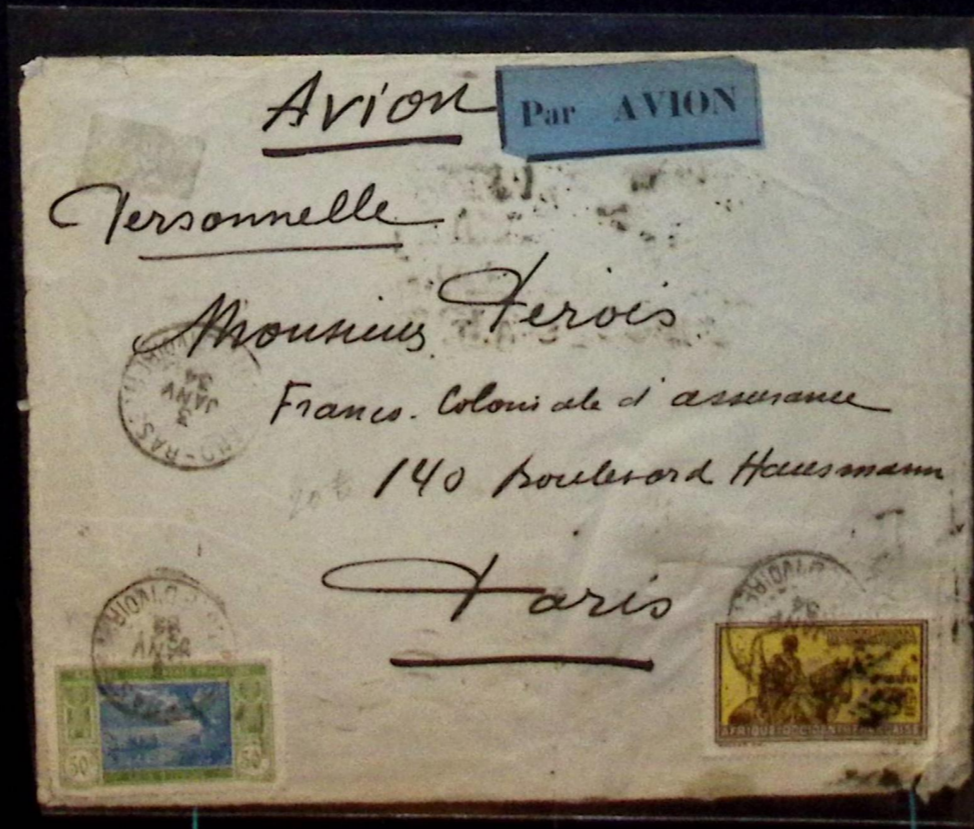 Avion
Par AVION
Personnelle
Monsieur Pervis
Franco-Coloniale d'assurance
140 Boulevard Hausmann
20 €
Paris
3
JANV
34
CÔTE D'IVOIRE
JANV
34
D'IVOIRE
JANV
34
50 50
AFRIQUE OCCIDENTALE FRANÇAISE